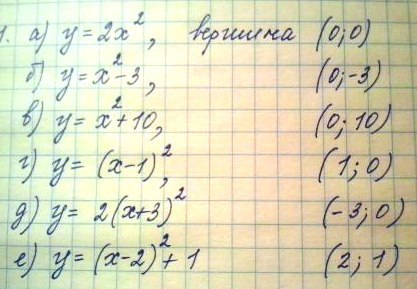 1. а) y = 2x², вершина (0; 0)
б) y = x² - 3, (0; -3)
в) y = x² + 10, (0; 10)
г) y = (x-1)², (1; 0)
д) y = 2(x+3)² (-3; 0)
е) y = (x-2)² + 1 (2; 1)